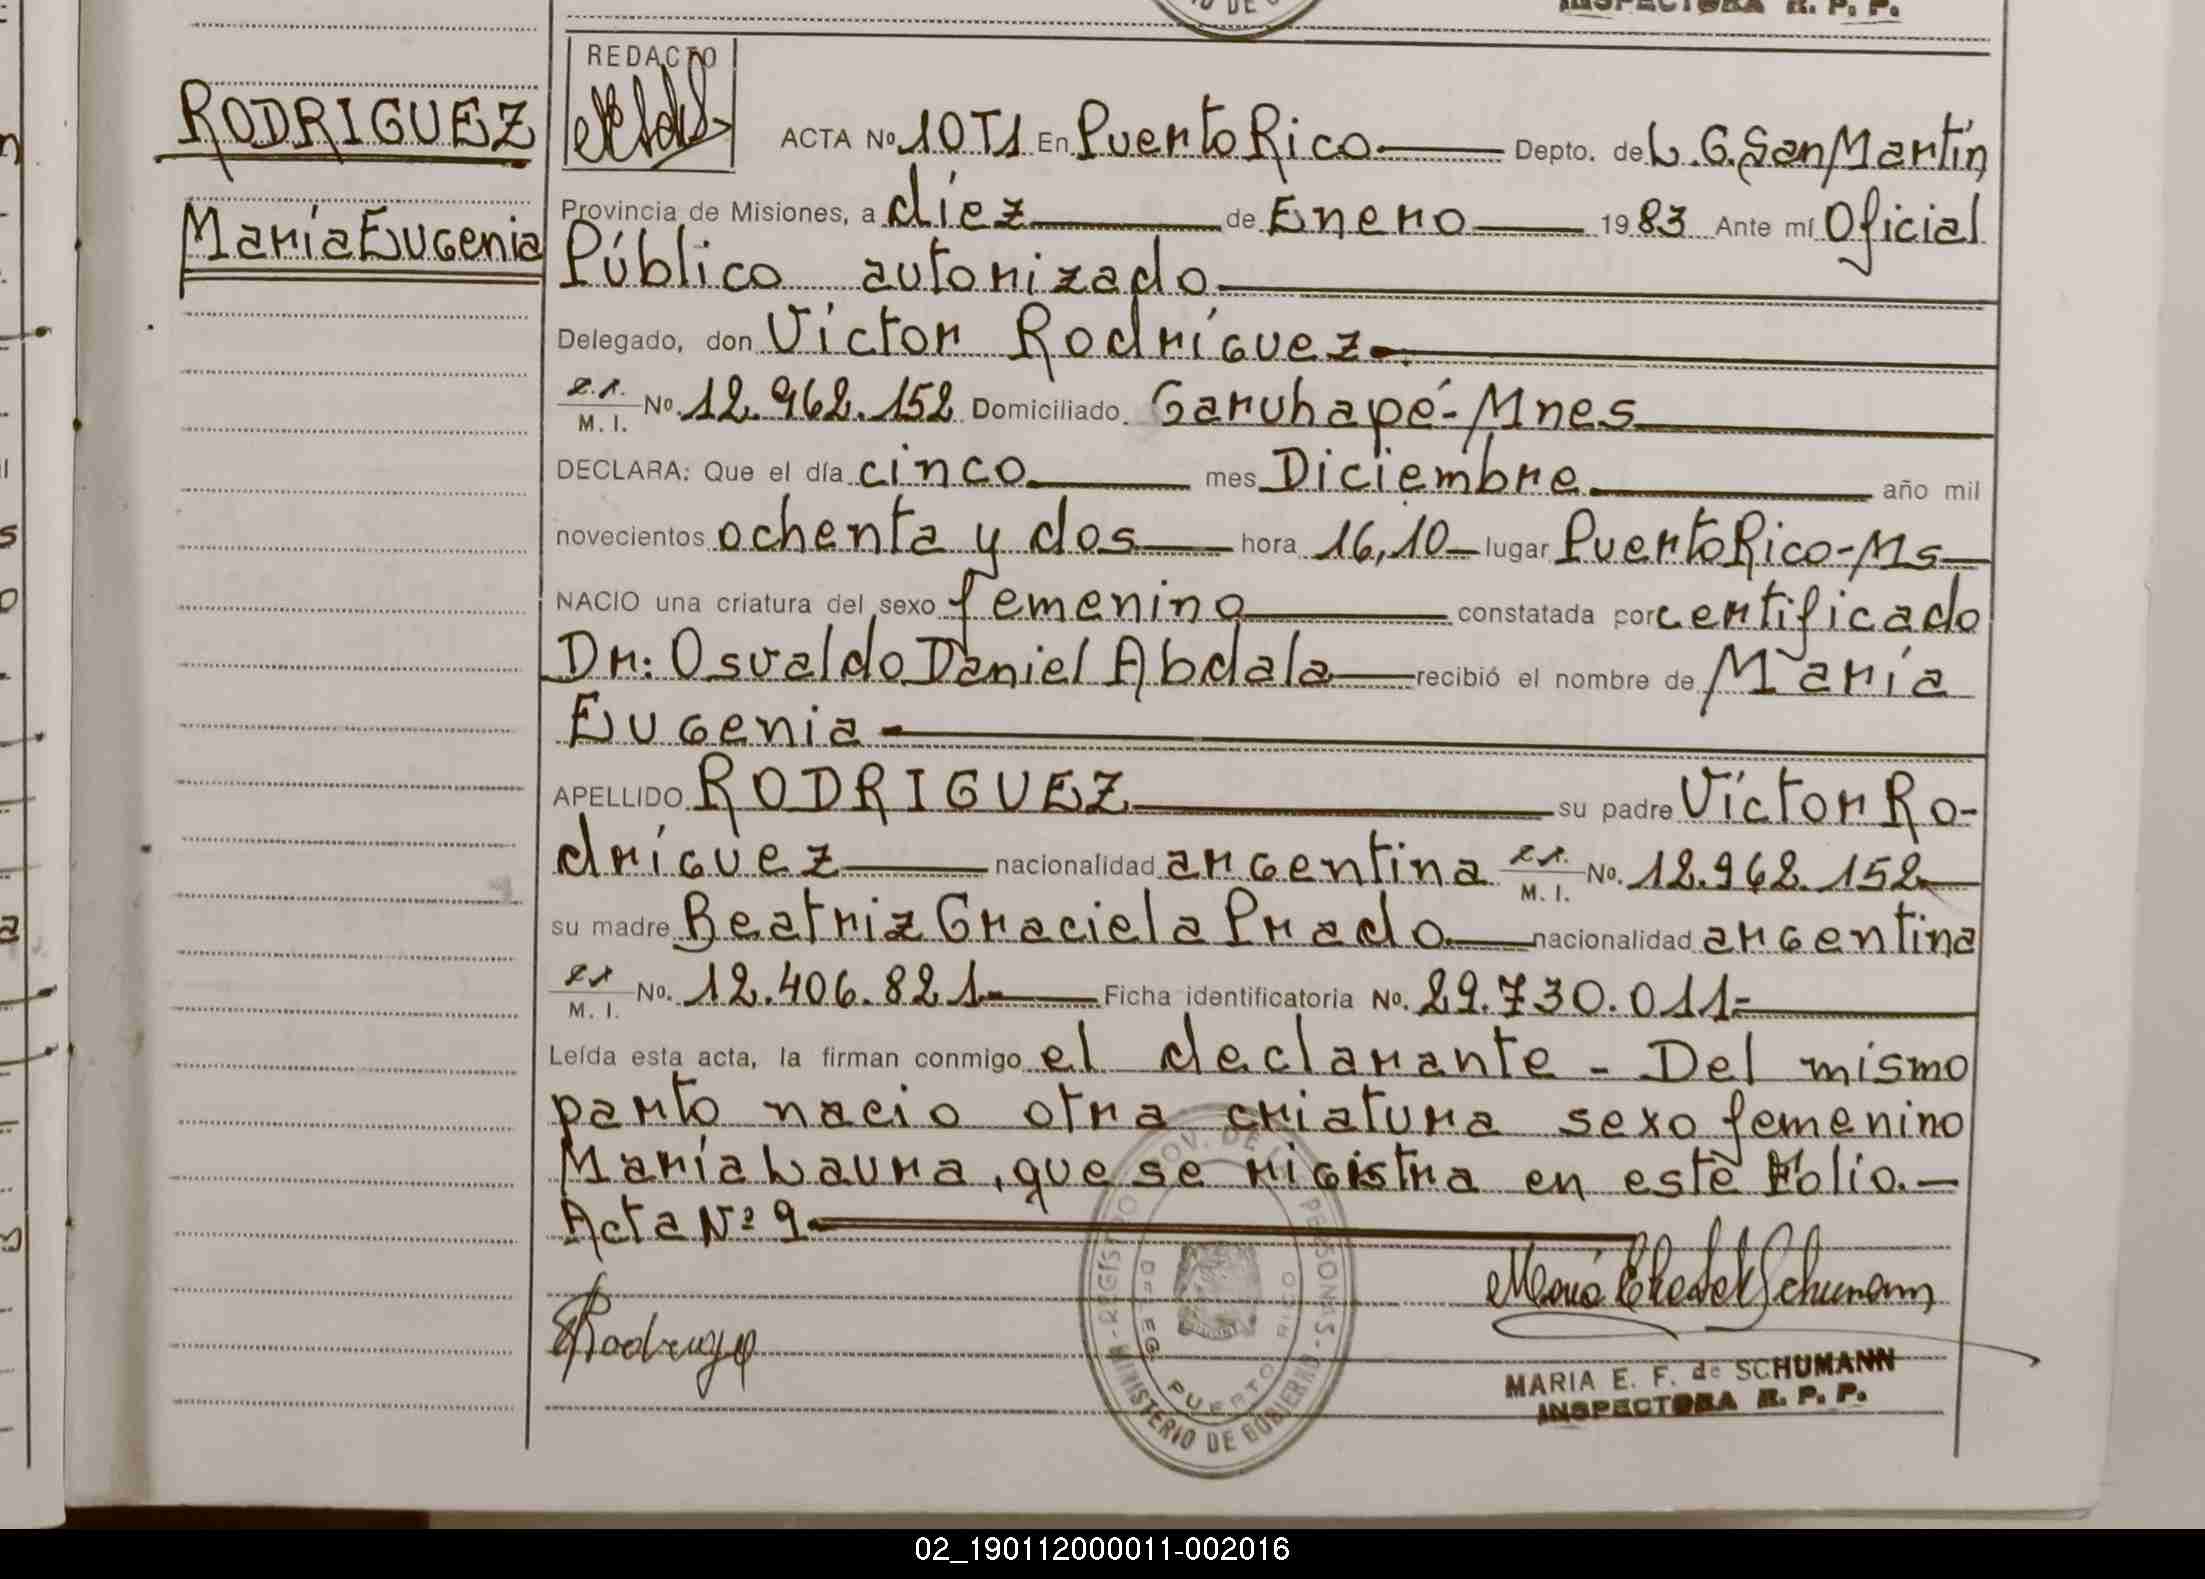 INSPECTORA R. P. P.
REDACTO
RODRIGUEZ
María Eugenia
ACTA No 10 T1 En Puerto Rico Depto. de L. G. San Martín
Provincia de Misiones, a díez de Enero 1983 Ante mí Oficial
Público autorizado
Delegado, don Víctor Rodríguez
M. I. No. 12.962.152 Domiciliado Garuhapé-Mnes
DECLARA: Que el día cinco mes Diciembre año mil
novecientos ochenta y dos hora 16,10 lugar Puerto Rico-Ms
NACIO una criatura del sexo femenino constatada por certificado
Dr: Osvaldo Daniel Abdala recibió el nombre de María
Eugenia
APELLIDO RODRIGUEZ su padre Víctor Ro-
dríguez nacionalidad argentina M. I. No. 12.962.152
su madre Beatriz Graciela Prado nacionalidad argentina
M. I. No. 12.406.821 Ficha identificatoria No. 29.730.011-
Leída esta acta, la firman conmigo el declarante - Del mismo
parto nacio otra criatura sexo femenino
María Laura, que se rigistra en este Folio.-
Acta Nº 9
MARIA E. F. de SCHUMANN
INSPECTORA R. P. P.
MINISTERIO DE GOBIERNO
PUERTO RICO
02_190112000011-002016